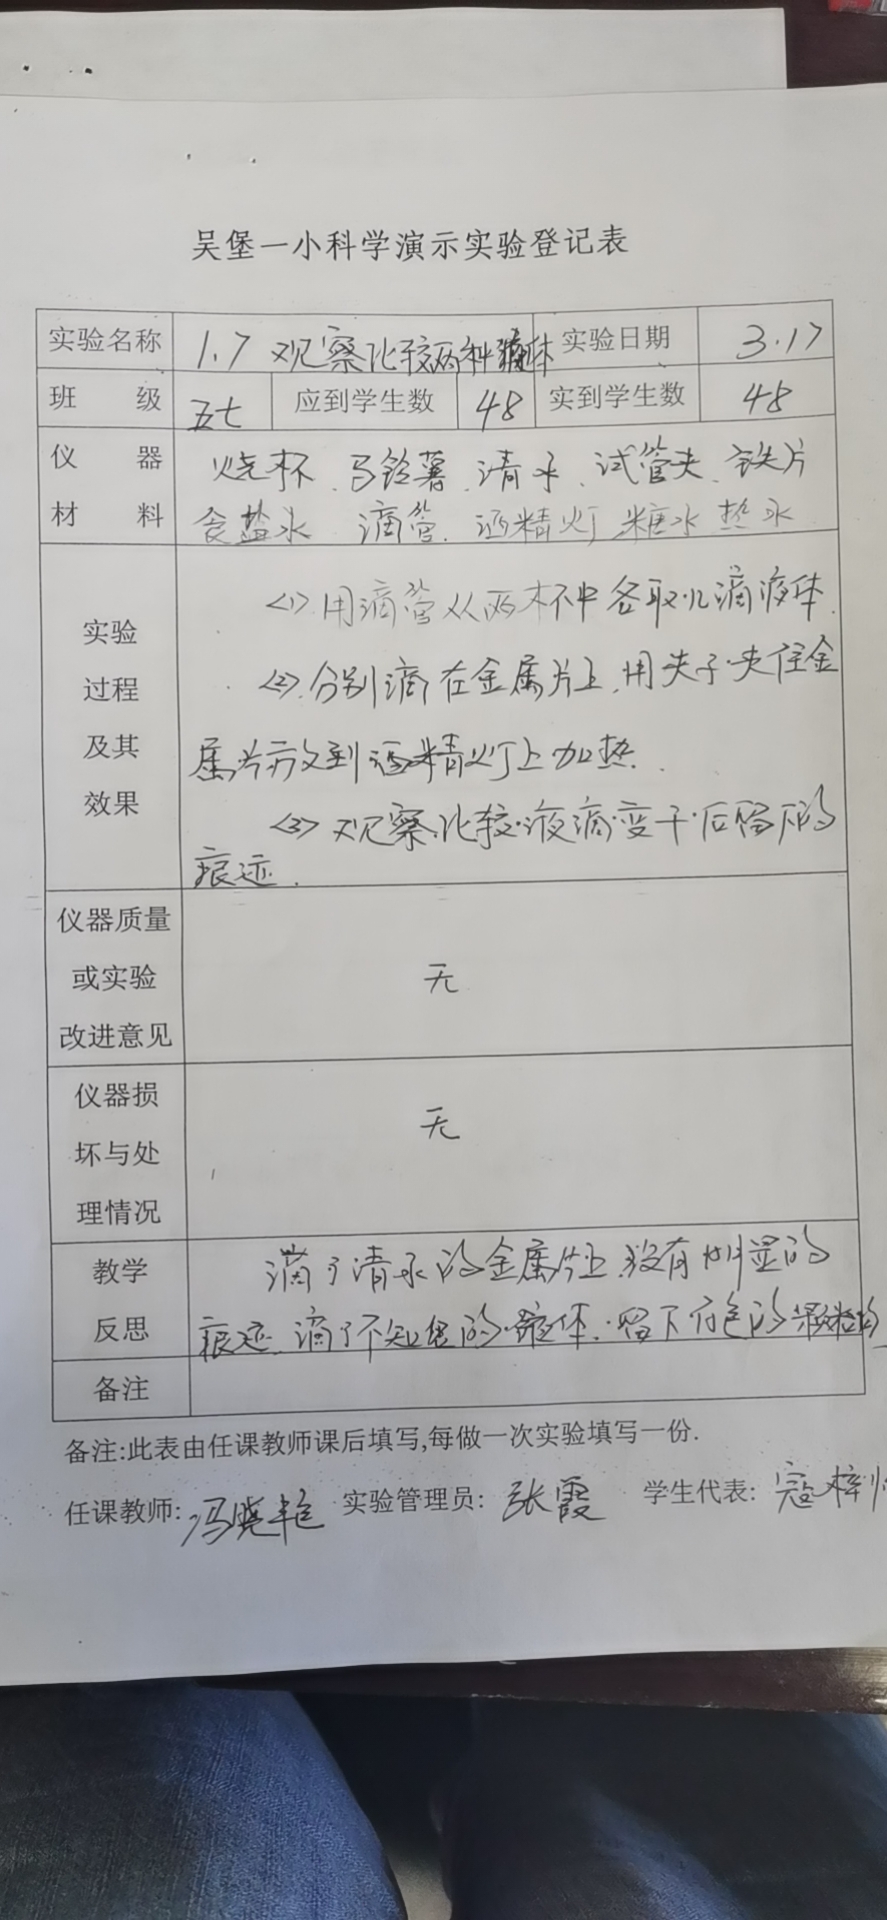 吴堡一小科学演示实验登记表
实验名称 1.7 观察比较两种液体 实验日期 3.17
班 级 五七 应到学生数 48 实到学生数 48
仪 器 烧杯、马铃薯、清水、试管夹、铁片
材 料 食盐水 滴管、酒精灯 糖水 热水
实验
过程
及其
效果
<1>用滴管从两杯中各取几滴液体.
<2>.分别滴在金属片上,用夹子夹住金
属片放到酒精灯上加热.
<3>观察比较液滴变干后留下的
痕迹.
仪器质量
或实验
改进意见
无
仪器损
坏与处
理情况
无
教学 滴了清水的金属片上没有明显的
反思 痕迹、滴了不知道的液体,留下白色的
备注
备注:此表由任课教师课后填写,每做一次实验填写一份.
任课教师: 冯晓艳 实验管理员: 张霞 学生代表: 寇梓